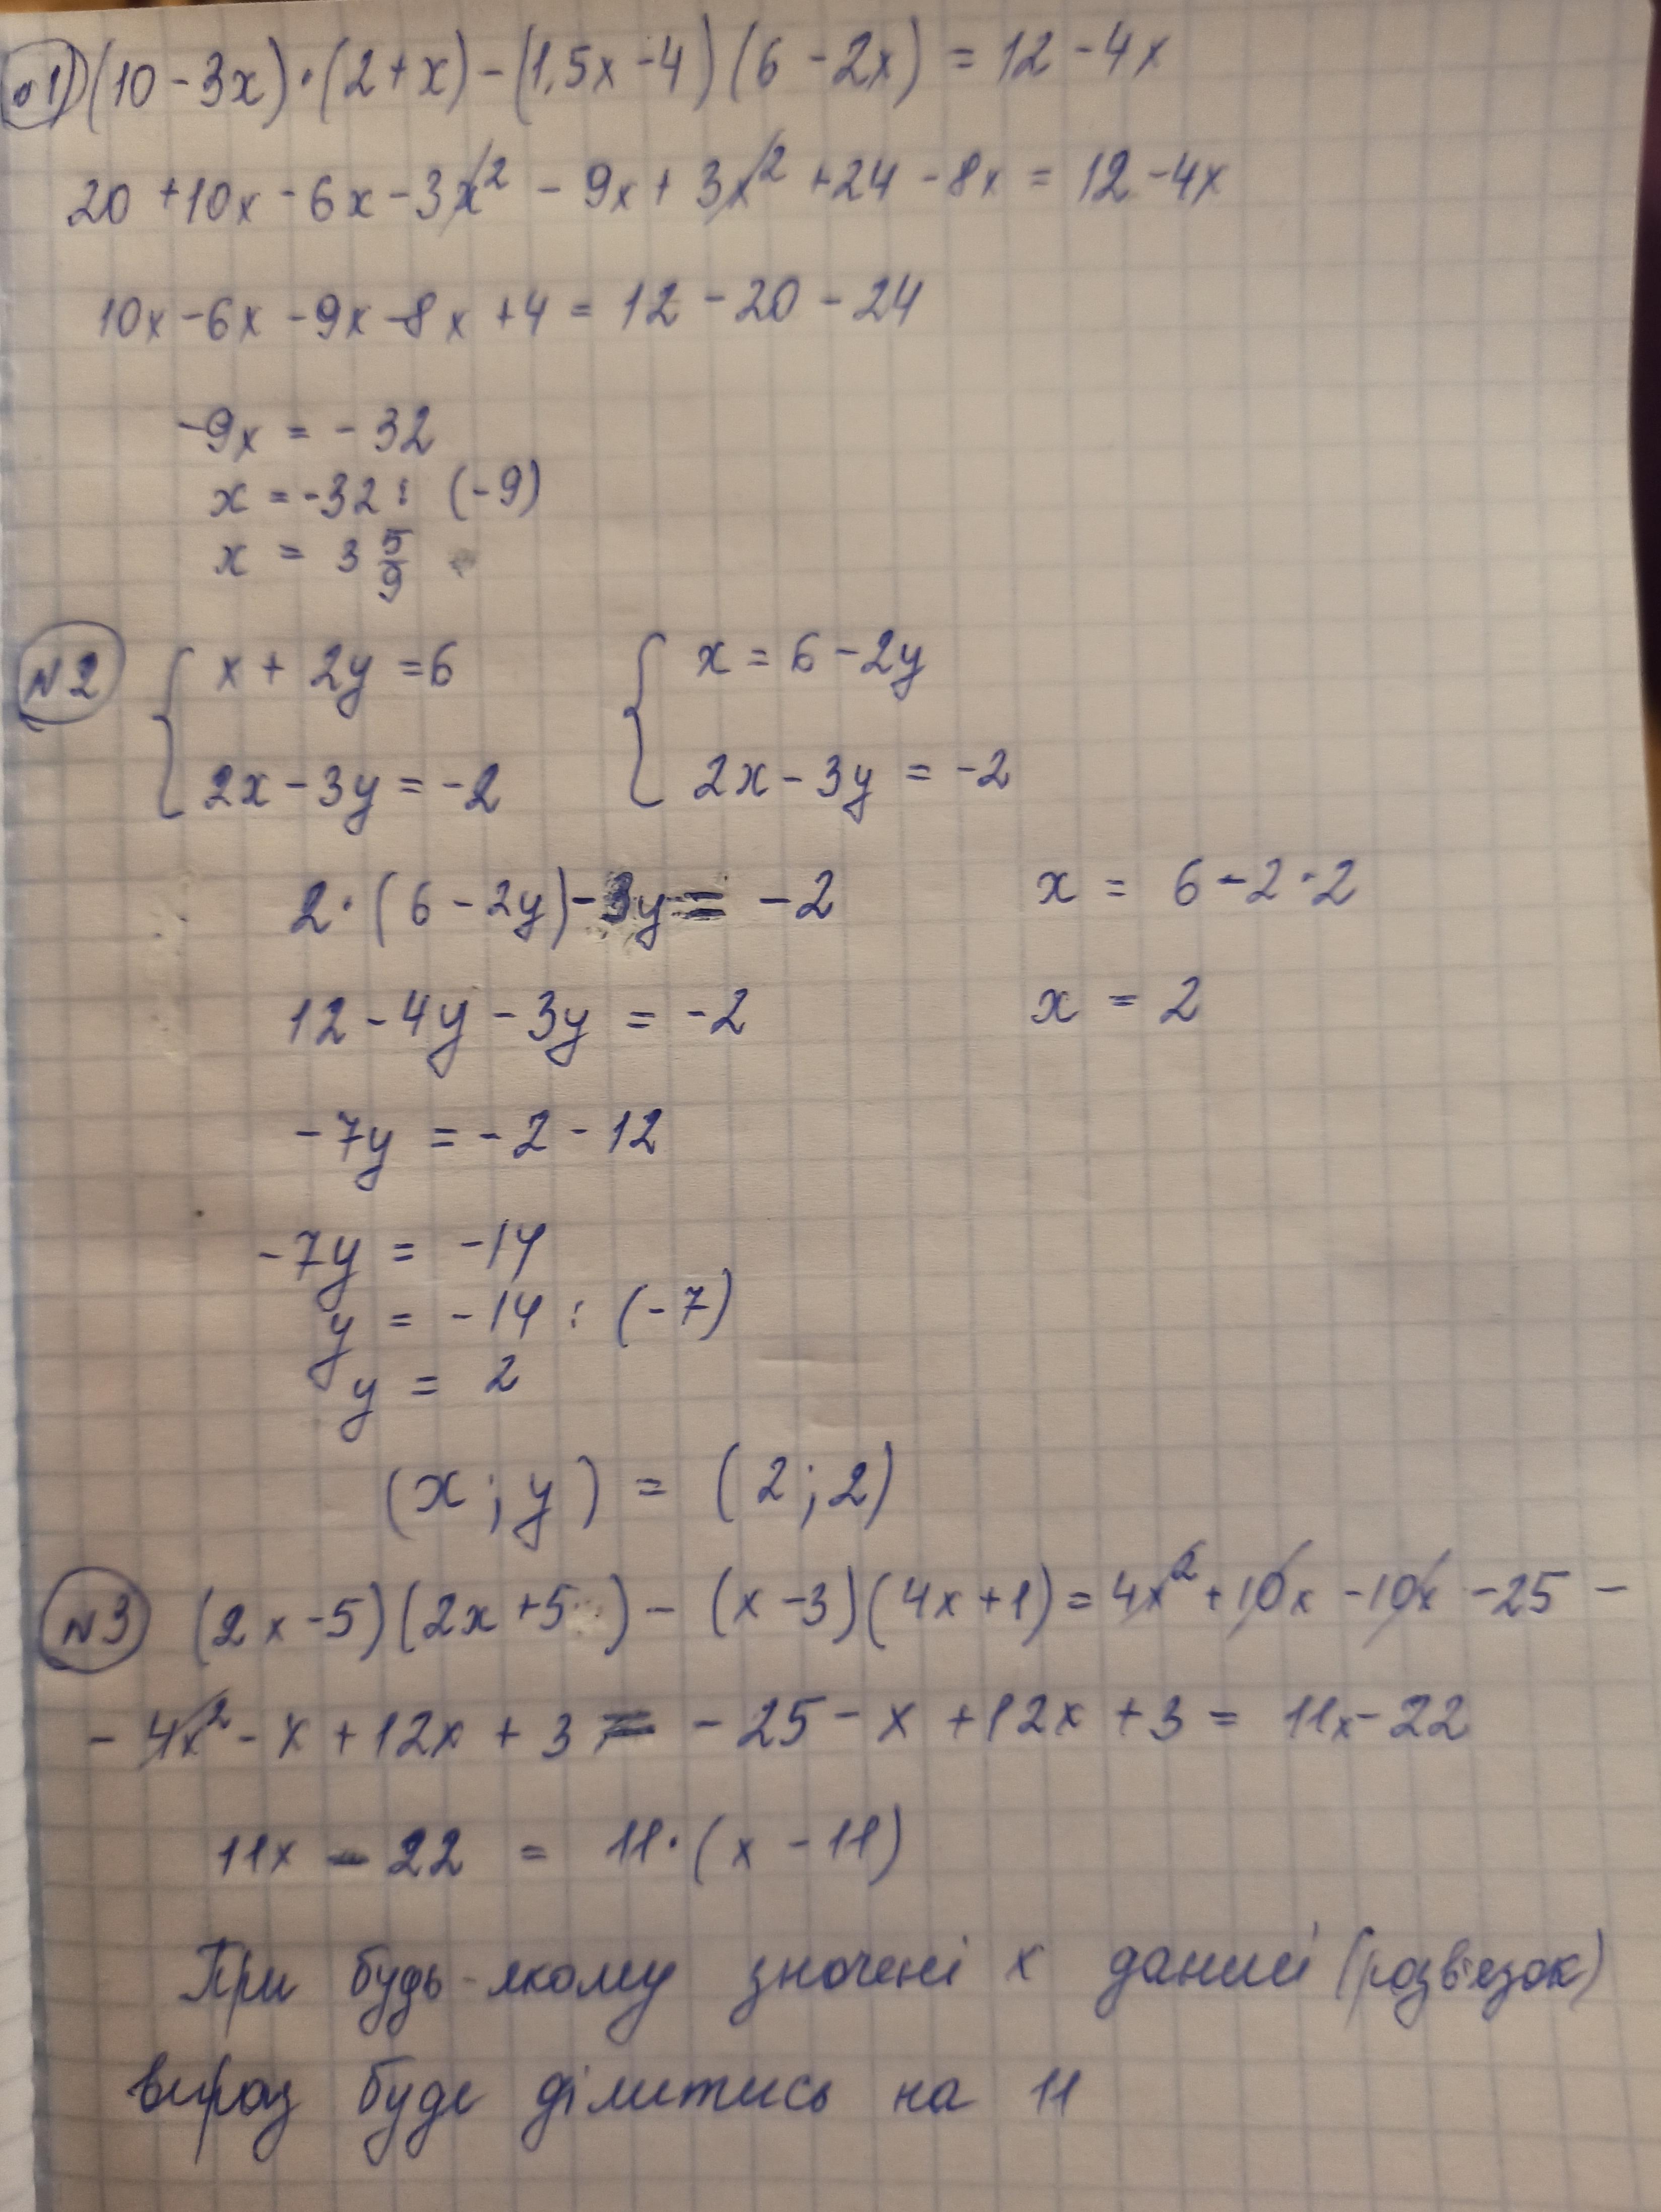 №1) (10 - 3x) · (2 + x) - (1,5x - 4) (6 - 2x) = 12 - 4x
20 + 10x - 6x - 3x² - 9x + 3x² + 24 - 8x = 12 - 4x
10x - 6x - 9x - 8x + 4 = 12 - 20 - 24
-9x = - 32
x = -32 : (-9)
x = 3 5/9
№2 { x + 2y = 6 { x = 6 - 2y
2x - 3y = -2 2x - 3y = -2
2 · (6 - 2y) - 3y = - 2 x = 6 - 2 · 2
12 - 4y - 3y = -2 x = 2
- 7y = - 2 - 12
- 7y = - 14
y = - 14 : (-7)
y = 2
(x ; y) = (2 ; 2)
№3 (2x - 5)(2x + 5) - (x - 3)(4x + 1) = 4x² + 10x - 10x - 25 -
- 4x² - x + 12x + 3 = - 25 - x + 12x + 3 = 11x - 22
11x - 22 = 11 · (x - 11)
При будь-якому значені x даний (розв'язок)
вираз буде ділитись на 11